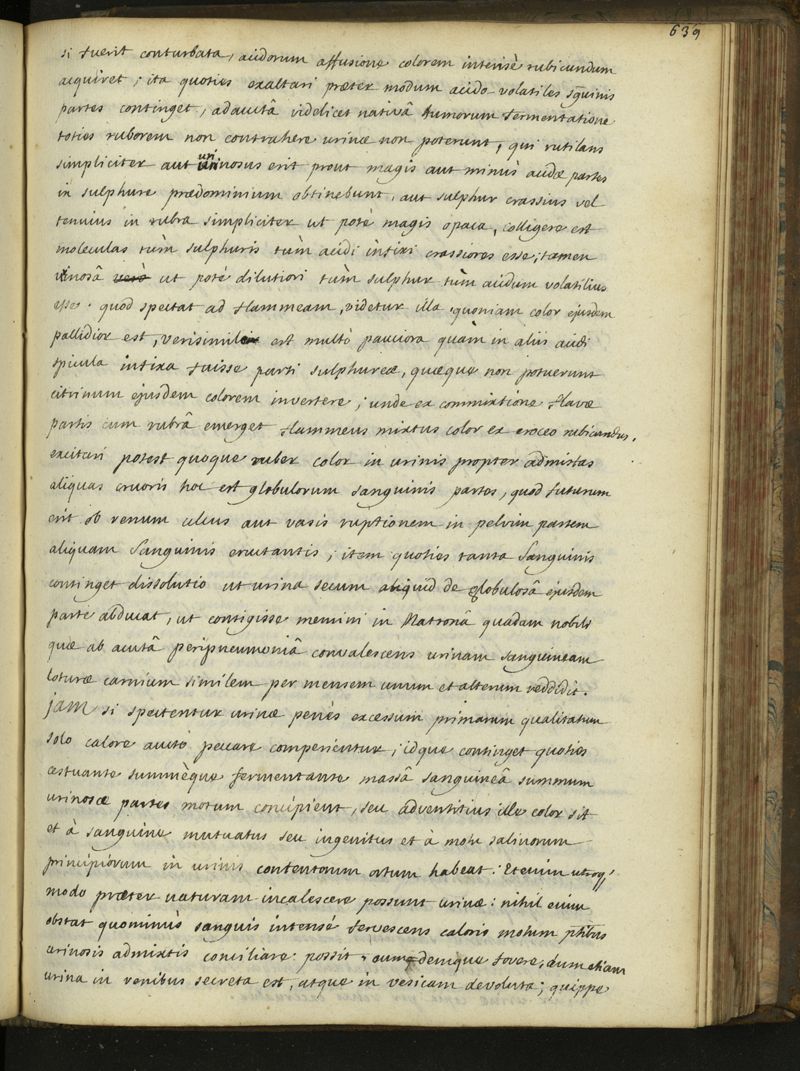 639
si fuerit conturbata, acidorum affusione colorem intensè rubicundum
acquiret; ita quoties exaltari præter modum acido volatiles sg̃uinis
partes continget, adauctâ videlicet nativâ humorum fermentatione
toties ruborem non contrahere urinæ non poterunt, qui rutilans
simpliciter aut vinosus erit prout magis aut minùs acidæ partes
in sulphure prædominium obtinebunt, aut sulphur crassius vel
tenuius in rubra simpliciter ut potè magis opaca, colligere est
moleculas tùm sulphuris tùm acidi infixi crassiores esse; tamen
vinosâ verò ut potè dilutiori tùm sulphur tùm acidum volatilius
esse. quod spectat ad flammeam, videtur illa, quoniam color ejusdem
pallidior est, verisimile est multò pauciora quàm in aliis acidi
spicula infixa fuisse parti sulphureæ, quæque non potuerunt
citrinum ejusdem colorem invertere; unde ex commixtione flavæ
partis cum rubrâ emerget flammeus mixtus color ex croceo rubicundus.
excitari potest quoque ruber color in urinis propter admistas
aliquas cruoris hoc est globulorum sanguinis partes, quod futurum
erit ob renum ulcus aut vasis ruptionem in pelvim partem
aliquam Sanguinis eructantis; item quoties tanta Sanguinis
continget dissolutio ut urina secum aliquid de globulosâ ejusdem
parte abducat, ut contigisse memini in Matronâ quadam nobili
quæ ab acutâ peripneumoniâ convalescens urinam sanguineam
loturæ carnium similem per mensem unum et alterum reddidit.
jam si spectentur urinæ penès excessum primarum qualitatum
solo calore aucto peccare comperientur; idque continget quoties
æstuante summèque fermentante massâ sanguineâ summum
urinosæ partes motum concipient, seu adventitius ille color sit
et à sanguine mutuatus seu ingenitus et à motu salinorum
principiorum in urinis contentorum ortum habeat: Etenim utroq'
modo præter naturam incalescere possunt urinæ: nihil enim
obstat quominùs sanguis intensè fervescens caloris motum ptibus
urinosis admixtis conciliare possit, eumdemque fovere, dum etiam
urina in renibus secreta est, atque in vesicam devoluta; quippe